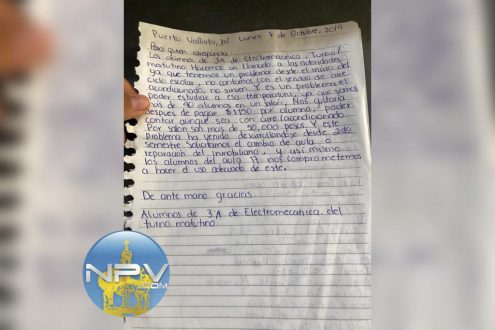 Puerto Vallarta, Jal. Lunes 7 de Octubre, 2019
Para quien corresponda
Los alumnos de 3A de Electromecanica, Turno
matutino Hacemos un llamado a las autoridades
ya que tenemos un problema desde el inicio del
ciclo escolar, no contamos con el servicio de aire
acondicionado, no sirven. Y es un problema el
poder estudiar a esa temperatura, ya que somos
más de 40 alumnos en un salon. Nos gustaria
despues de pagar $1,150 por alumno, poder
contar aunque sea con aire acondicionado
Por salón son mas de 50,000 pesos. Y este
problema ha venido desarrollandose desde 2do
semestre. Solicitamos el cambio de aula o
reparacion del inmobiliario, y asi mismo
los alumnos del aula 17, nos comprometemos
a hacer el uso adecuado de este.
De ante mano gracias.
Alumnos de 3A de Electromecánica del
turno matutino.
NPV
.COM